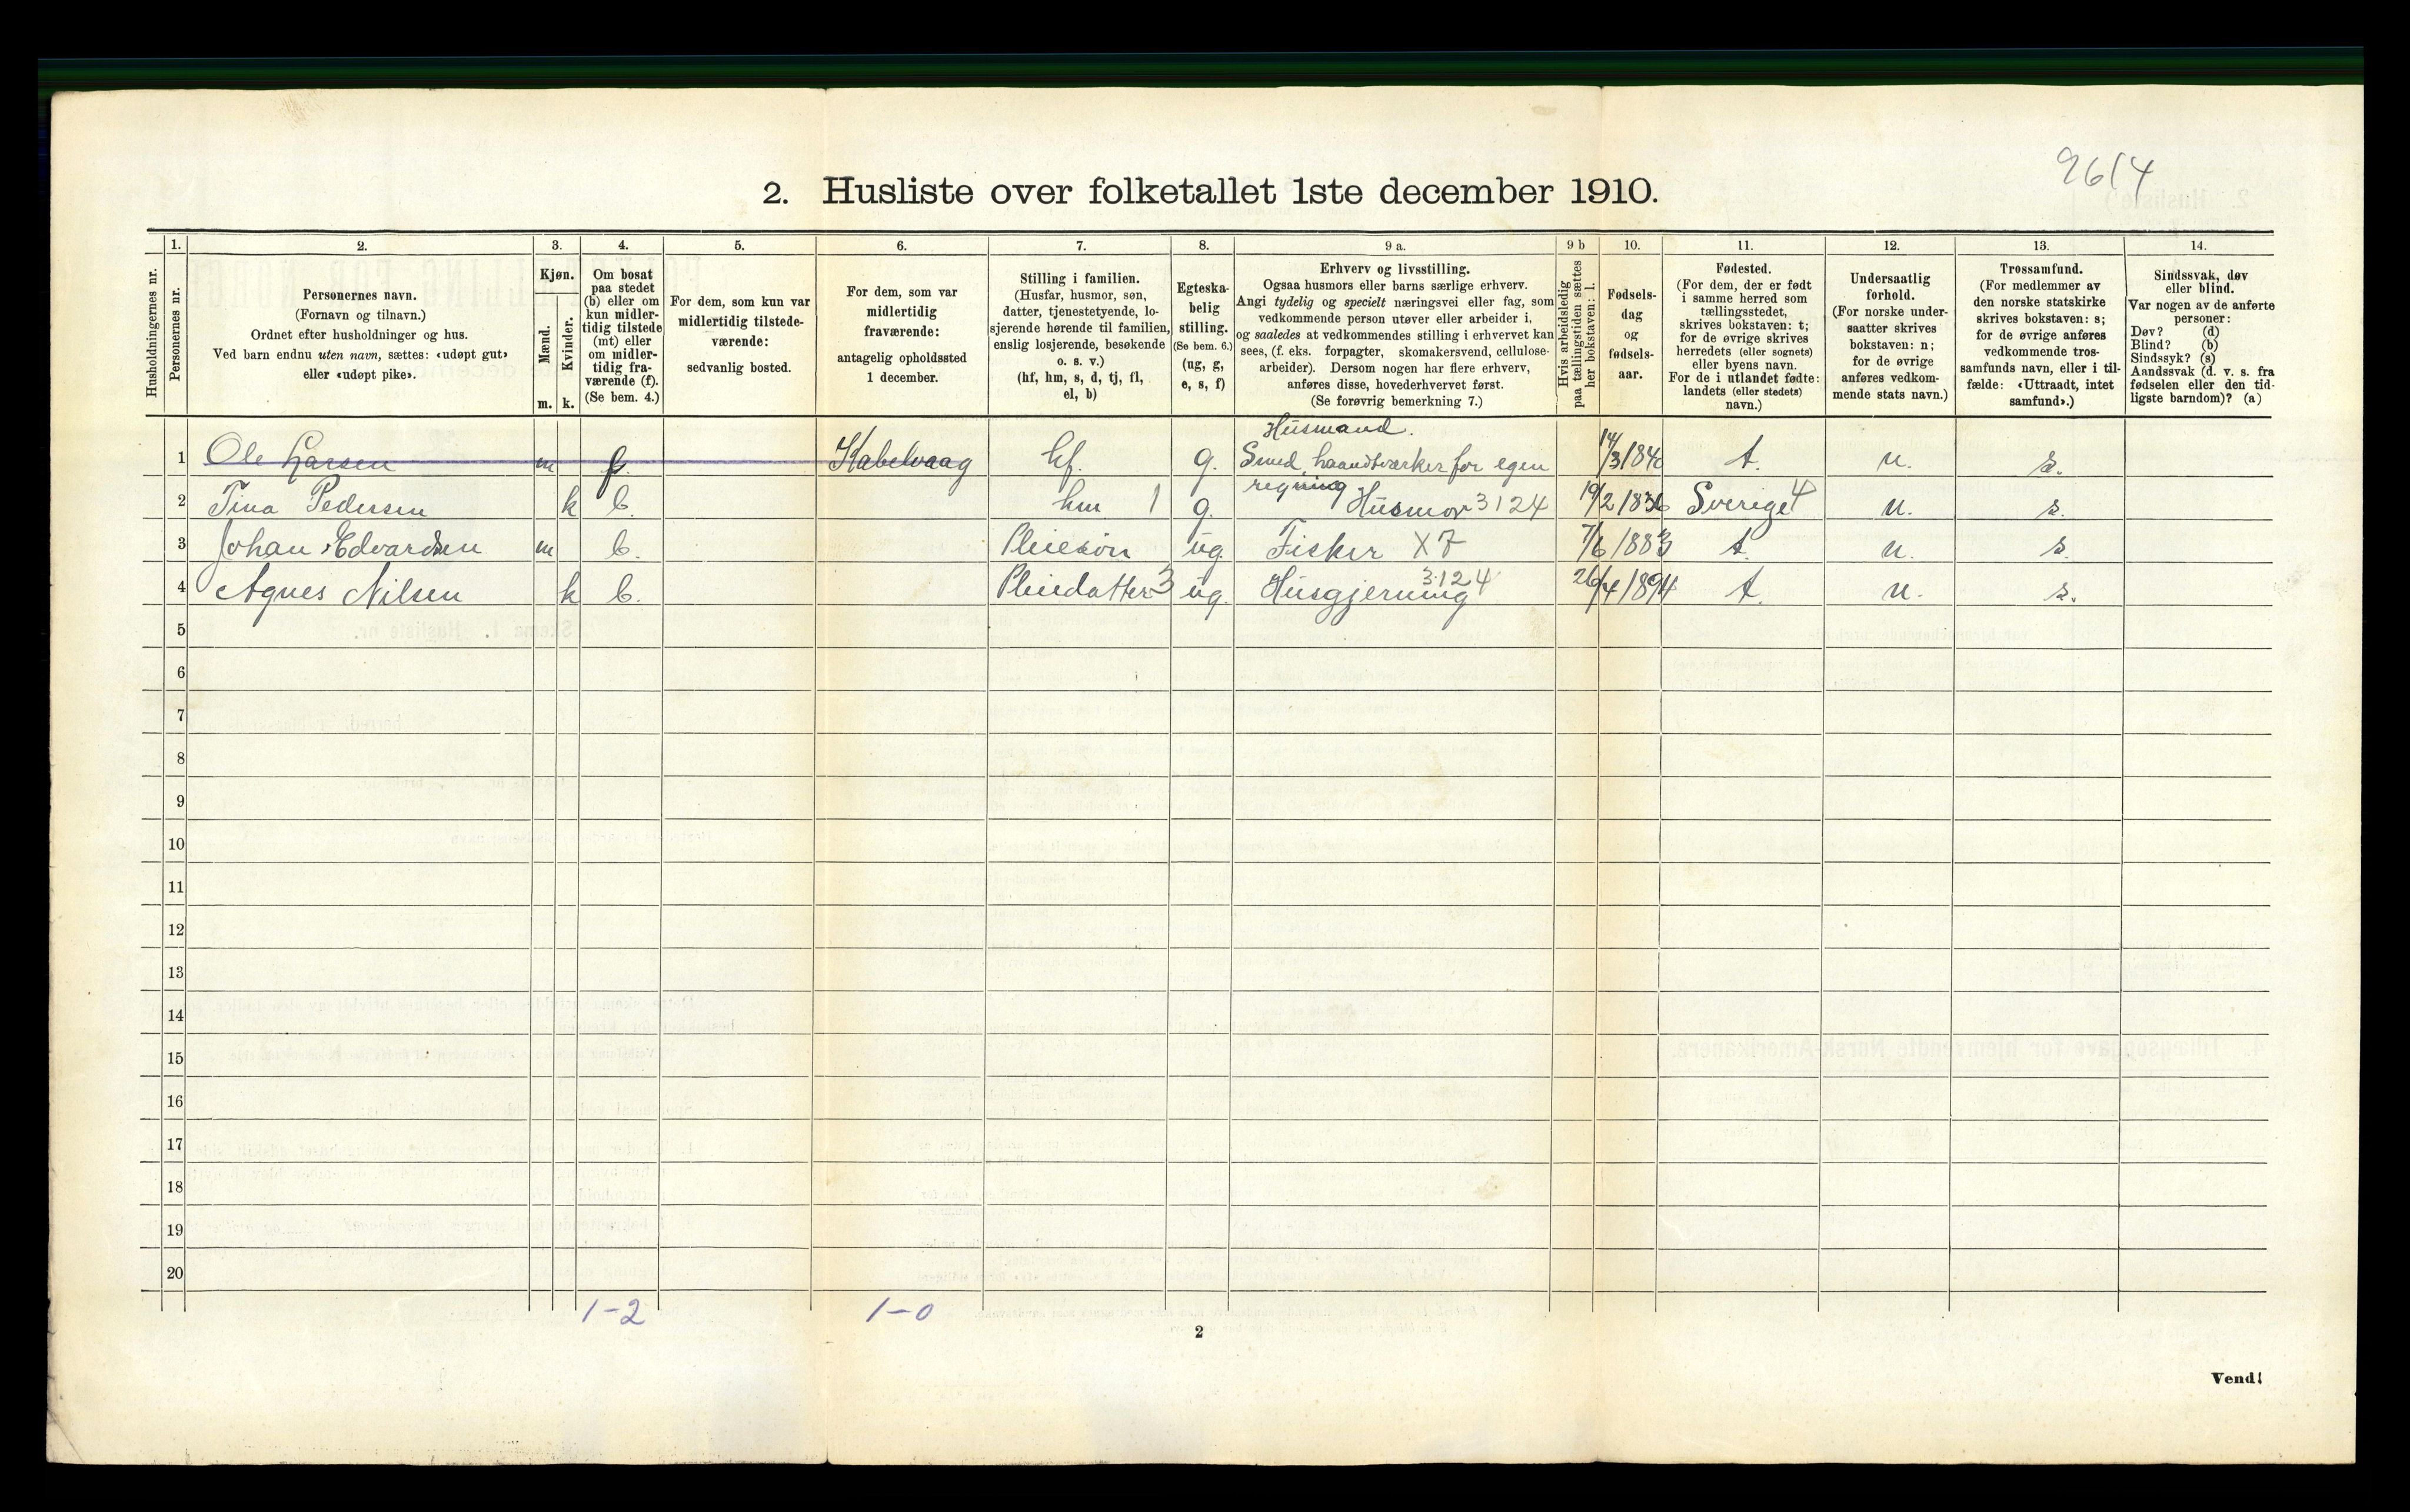 9614
2. Husliste over folketallet 1ste december 1910.
Husholdningernes nr.
1.
Personernes nr.
2.
Personernes navn.
(Fornavn og tilnavn.)
Ordnet efter husholdninger og hus.
Ved barn endnu uten navn, sættes: «udøpt gut»
eller «udøpt pike».
3.
Kjøn.
Mænd.
Kvinder.
m. k.
4.
Om bosat
paa stedet
(b) eller om
kun midler-
tidig tilstede
(mt) eller
om midler-
tidig fra-
værende (f).
(Se bem. 4.)
5.
For dem, som kun var
midlertidig tilstede-
værende:
sedvanlig bosted.
6.
For dem, som var
midlertidig
fraværende:
antagelig opholdssted
1 december.
7.
Stilling i familien.
(Husfar, husmor, søn,
datter, tjenestetyende, lo-
sjerende hørende til familien,
enslig losjerende, besøkende
o. s. v.)
(hf, hm, s, d, tj, fl,
el, b)
8.
Egteska-
belig
stilling.
(Se bem. 6.)
(ug, g,
e, s, f)
9 a.
Erhverv og livsstilling.
Ogsaa husmors eller barns særlige erhverv.
Angi tydelig og specielt næringsvei eller fag, som
vedkommende person utøver eller arbeider i,
og saaledes at vedkommendes stilling i erhvervet kan
sees, (f. eks. forpagter, skomakersvend, cellulose-
arbeider). Dersom nogen har flere erhverv,
anføres disse, hovederhvervet først.
(Se forøvrig bemerkning 7.)
9 b
Hvis arbeidsledig
paa tællingstiden sættes
her bokstaven: l.
10.
Fødsels-
dag
og
fødsels-
aar.
11.
Fødested.
(For dem, der er født
i samme herred som
tællingsstedet,
skrives bokstaven: t;
for de øvrige skrives
herredets (eller sognets)
eller byens navn.
For de i utlandet fødte:
landets (eller stedets)
navn.)
12.
Undersaatlig
forhold.
(For norske under-
saatter skrives
bokstaven: n;
for de øvrige
anføres vedkom-
mende stats navn.)
13.
Trossamfund.
(For medlemmer av
den norske statskirke
skrives bokstaven: s;
for de øvrige anføres
vedkommende tros-
samfunds navn, eller i til-
fælde: «Uttraadt, intet
samfund».)
14.
Sindssvak, døv
eller blind.
Var nogen av de anførte
personer:
Døv? (d)
Blind? (b)
Sindssyk? (s)
Aandssvak (d. v. s. fra
fødselen eller den tid-
ligste barndom)? (a)
Husmand.
1 Ole Larsen m f. Kabelvaag hf. g. Smed, haandtværker for egen 14/3 1840 t. n. s.
regning
2 Tina Pedersen k b. hm 1 g. Husmor 3124 19/2 1836 Sverige 4 n. s.
3 Johan Edvardsen m b. Pleiesøn ug. Fisker X7 7/6 1883 t. n. s.
4 Agnes Nilsen k b. Pleiedatter 3 ug. Husgjerning 3124 26/4 1894 t. n. s.
5
6
7
8
9
10
11
12
13
14
15
16
17
18
19
20
1-2 1-0
2
Vend!